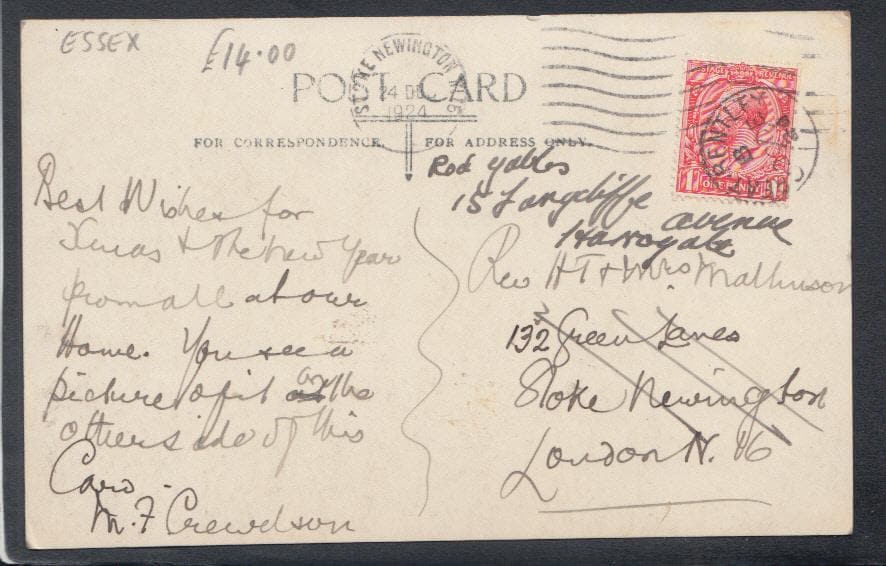 ESSEX £14.00
STOKE NEWINGTON N.16
24 DEC
1924
POST CARD
FOR CORRESPONDENCE. FOR ADDRESS ONLY.
POSTAGE REVENUE
ONE PENNY
BENTLEY
Best Wishes for
Xmas & the New Year
from all at our
Home. You see a
picture of it on the
other side of this
Card.
M. F Crewdson
Rod Gables
15 Langcliffe
avenue
Harrogate
Rev HT & Mrs Mathinson
132 Green Lanes
Stoke Newington
London N. 16